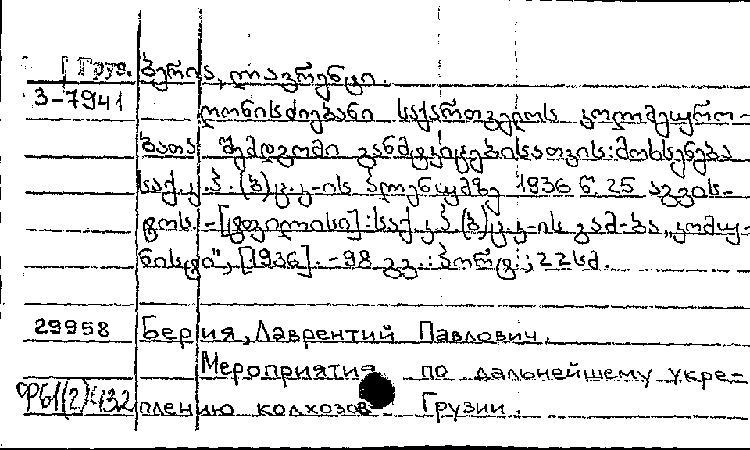 Груз. ბერია, ლავრენტი.
3-7941 ღონისძიებანი საქართველოს კოლმეურნეო-
ბათა შემდგომი განმტკიცებისათვის: მოხსენება
საქ.კ.პ.(ბ)ც.კ-ის პლენუმზე 1936 წ. 25 აგვის-
ტოს. -[ტფილისი]: საქ.კპ.(ბ)ც.კ-ის გამ-ბა „კომუ-
ნისტი", [1936]. -98 გვ.: პორტ.; 22სმ.
29958 Берия, Лаврентий Павлович.
Мероприятия по дальнейшему укре-
ФБ1(2)432 плению колхозов Грузии.